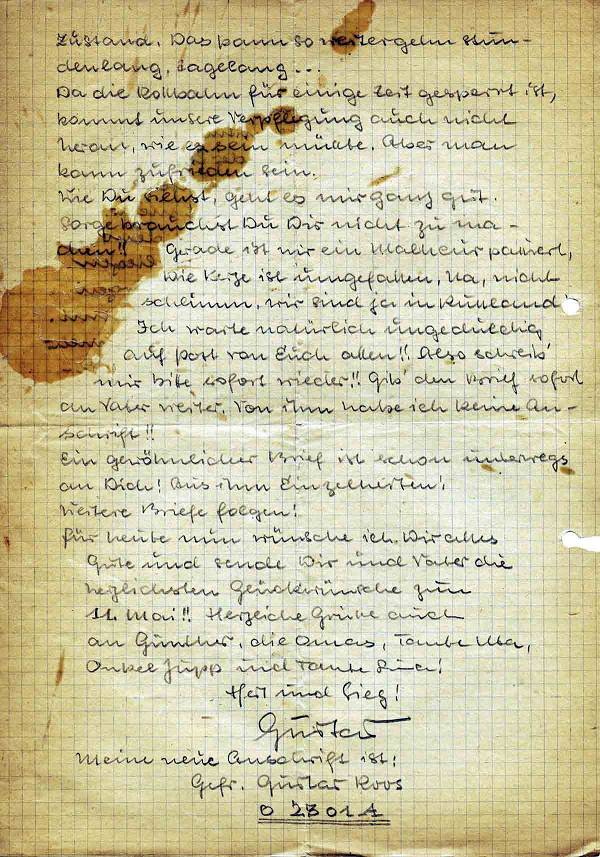 Zustand. Das kann so weitergehn stun-
denlang, tagelang...
Da die Rollbahn für einige Zeit gesperrt ist,
kommt unsere Verpflegung auch nicht
heran, wie es sein müßte. Aber man
kann zufrieden sein.
Wie Du siehst, geht es mir ganz gut.
Sorge brauchst Du Dir nicht zu ma-
chen!! Gerade ist mir ein Malheur passiert,
die Kerze ist umgefallen, na, nicht
schlimm, wir sind ja in Rußland!
Ich warte natürlich ungeduldig
auf Post von Euch allen!! Also schreib'
mir bitte sofort wieder!! Gib' den Brief sofort
an Vater weiter. Von ihm habe ich keine An-
schrift!!
Ein gewöhnlicher Brief ist schon unterwegs
an Dich! Aus ihm Einzelheiten!
Weitere Briefe folgen!
Für heute nun wünsche ich Dir alles
Gute und sende Dir und Vater die
herzlichsten Glückwünsche zum
11. Mai!! Herzliche Grüße auch
an Günther, die Omas, Tante
Onkel Jupp und Tante
Heil und Sieg!
Gustav
Meine neue Anschrift ist:
Gefr. Gustav Roos
0 2301 A